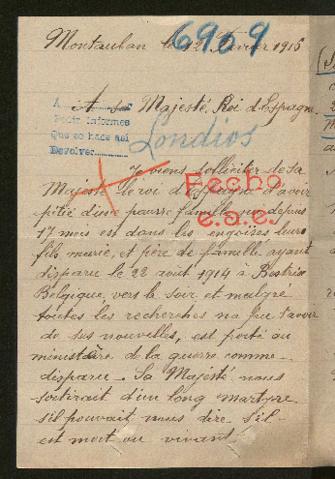 6969
Montauban le 12 Février 1916
A sa Majesté Roi d'Espagne
A
Pedir Informes
Que se hace así
Devolver
Londios
Je viens solliciter de sa
Majesté le roi d'Espagne d'avoir
pitié d'une pauvre famille qui depuis
Fecho
e.a.e.
17 mois est dans les engoises leur
fils marié, et père de famille ayant
disparu le 22 août 1914 à Bestrix
Belgique, vers le soir et malgré
toutes les recherches na pu savoir
de ses nouvelles, est porté au
ministère de la guerre comme
disparu. Sa Majesté nous
sortirait d'un long martyre
s'il pouvait nous dire s'il
est mort ou vivant